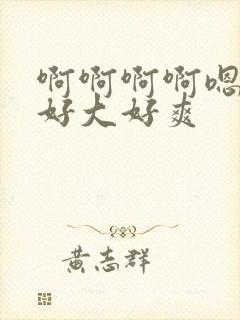 啊啊啊啊嗯
好大好爽
黄志群